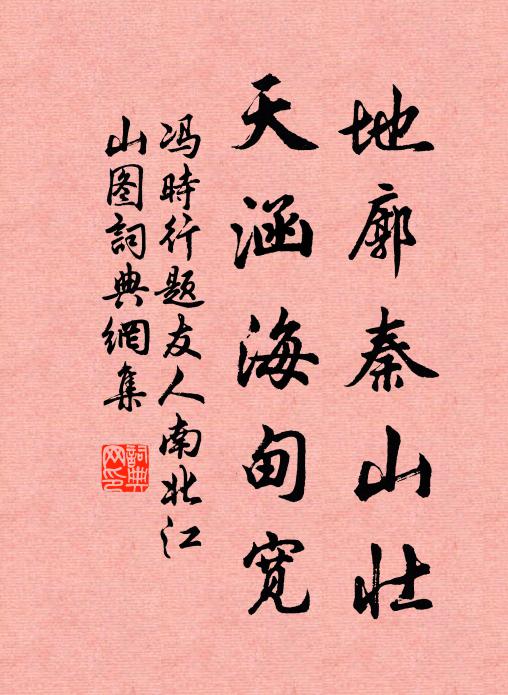 地廓秦山壮
天涵海甸宽
冯時行题友人南北江
山图詞典網集
詞典网印